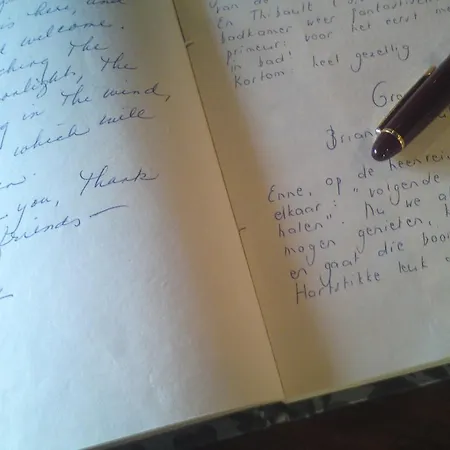 is here, and
t welcome.
ching the
onlight, the
g in the wind,
which will
you, thank
friends —
Van de
En Thibault
badkamer weer fantastisch
primeur: voor het eerst m
in bad!
Kortom heel gezellig
Gro
Brian
Enne, op de heenrei
elkaar: "volgende
halen". Nu we a
mogen genieten, k
en gaat die boo
Hartstikke leuk